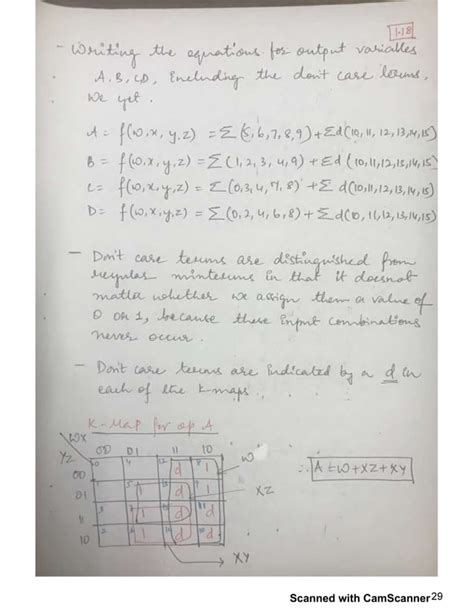 1.18
- Writing the equations for output variables
A, B, C, D, Including the don't care terms,
we get.
A = f(w,x,y,z) = Σ(5,6,7,8,9) + Σd(10,11,12,13,14,15)
B = f(w,x,y,z) = Σ(1,2,3,4,9) + Σd(10,11,12,13,14,15)
C = f(w,x,y,z) = Σ(0,3,4,7,8) + Σd(10,11,12,13,14,15)
D = f(w,x,y,z) = Σ(0,2,4,6,8) + Σd(10,11,12,13,14,15)
- Don't care terms are distinguished from
regular minterms in that it doesnot
matter whether we assign them a value of
0 or 1, because these input combinations
never occur.
- Don't care terms are indicated by a d in
each of the K-maps.
K-Map for op A
WX
YZ 00 01 11 10
00 0 4 12 d 8 1
01 1 5 1 13 d 9 1
11 3 7 1 15 d 11 d
10 2 6 1 14 d 10 d
W
XZ
XY
∴ A = W + XZ + XY
Scanned with CamScanner 29